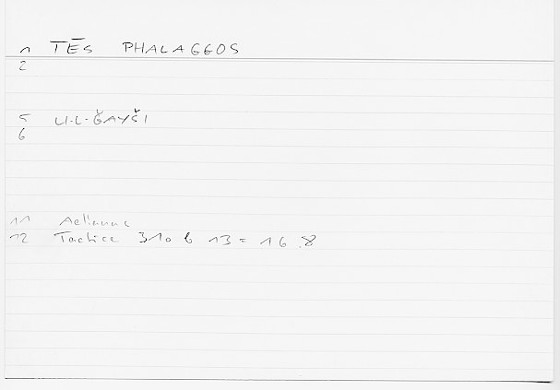 1 TĒS PHALAGGOS
2
5 LI-L-ǦAYŠI
6
11 Aelianus
12 Tactica 310 b 13 = 16.8